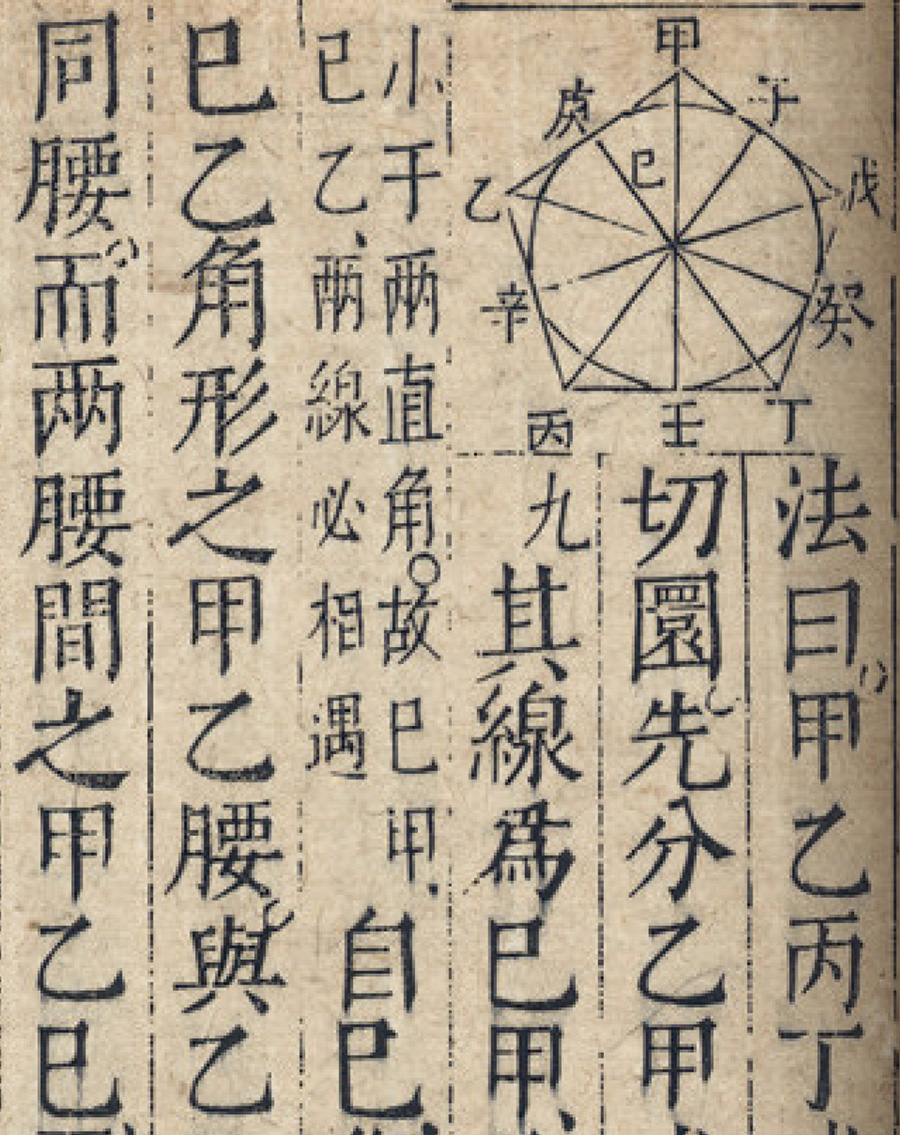 甲
子
庚
己
乙
戊
辛
癸
丙
壬
丁
法曰甲乙丙丁
切圜先分乙甲
九其線為己甲
小于兩直角故己甲
己乙兩線必相遇
自己
己乙角形之甲乙腰與乙
同腰而兩腰間之甲乙己